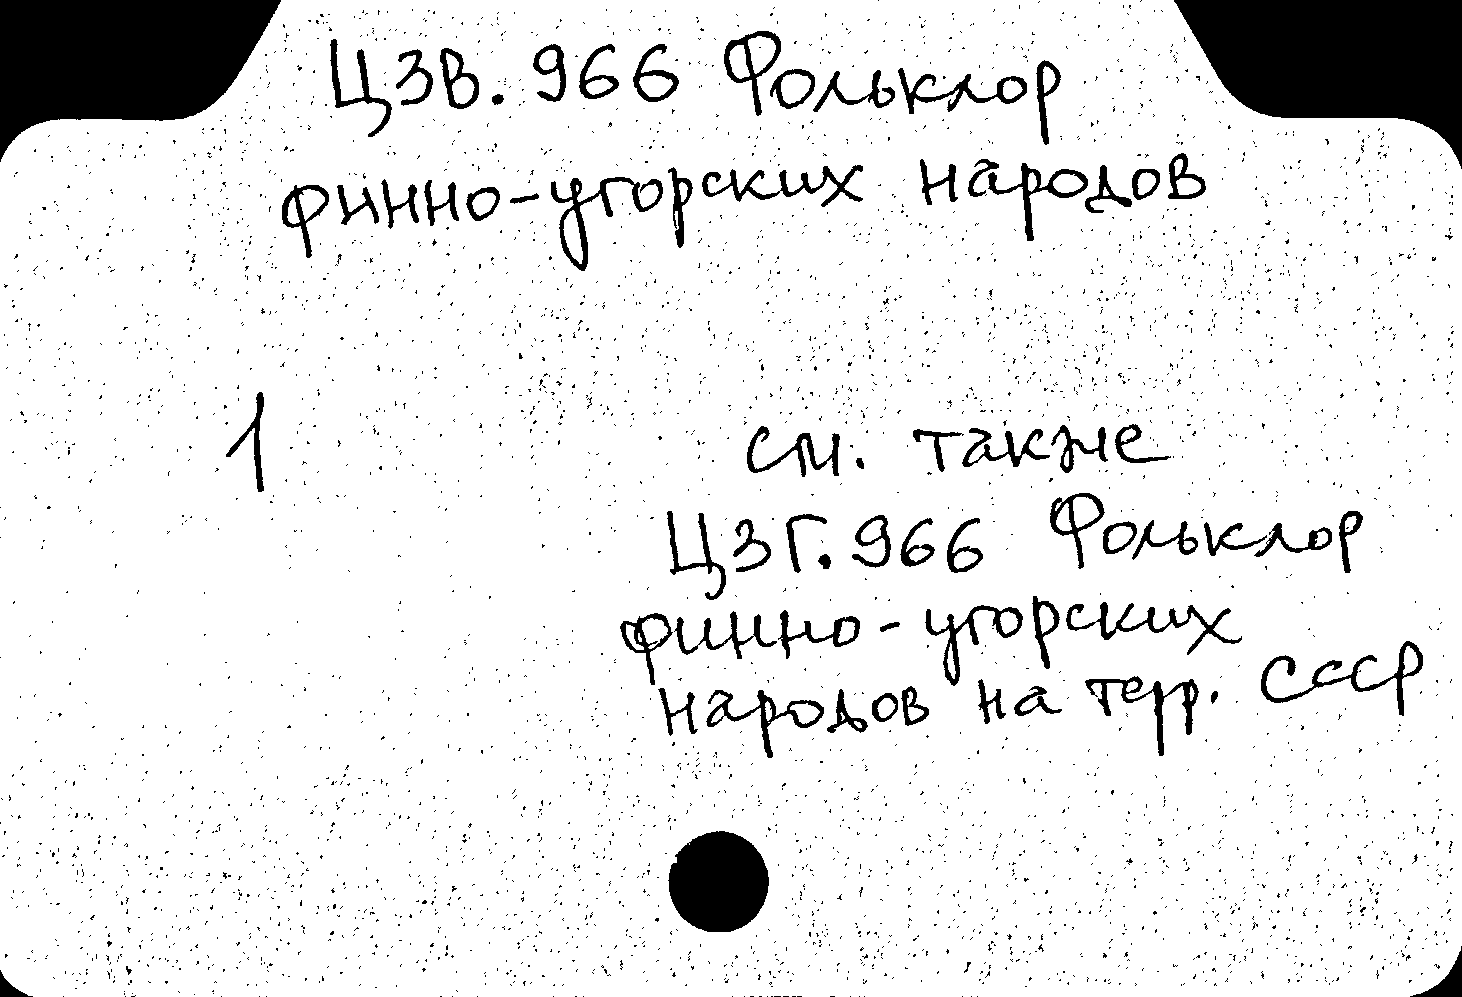 ЦЗВ. 966 Фольклор
финно-угорских народов
1
см. также
ЦЗГ. 966 Фольклор
финно-угорских
народов на терр. СССР